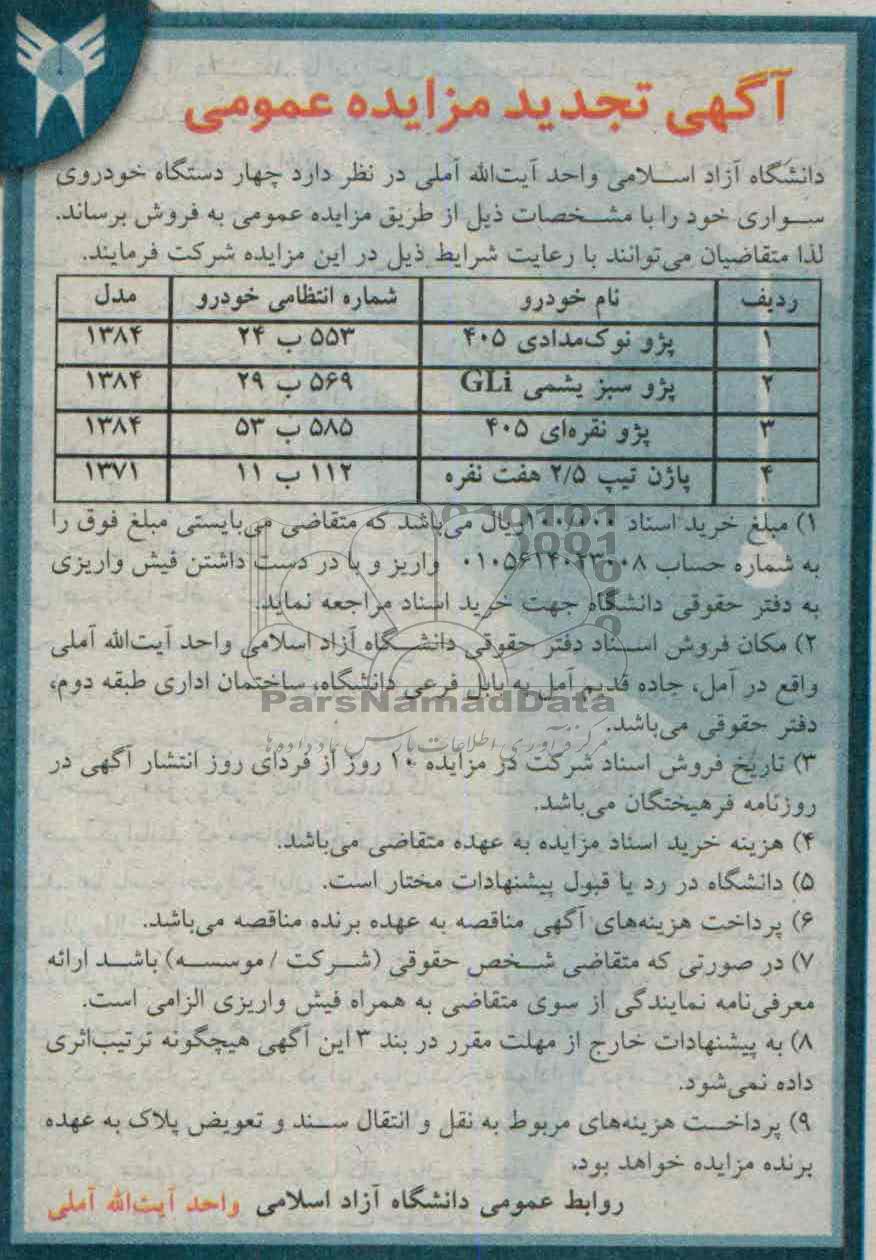 آگهی تجدید مزایده عمومی
دانشگاه آزاد اسلامی واحد آیت‌الله آملی در نظر دارد چهار دستگاه خودروی
سواری خود را با مشخصات ذیل از طریق مزایده عمومی به فروش برساند.
لذا متقاضیان می‌توانند با رعایت شرایط ذیل در این مزایده شرکت فرمایند.
ردیف نام خودرو شماره انتظامی خودرو مدل
۱ پژو نوک‌مدادی ۴۰۵ ۵۵۳ ب ۲۴ ۱۳۸۴
۲ پژو سبز یشمی GLi ۵۶۹ ب ۲۹ ۱۳۸۴
۳ پژو نقره‌ای ۴۰۵ ۵۸۵ ب ۵۳ ۱۳۸۴
۴ پاژن تیپ ۲/۵ هفت نفره ۱۱۲ ب ۱۱ ۱۳۷۱
۱) مبلغ خرید اسناد ۱۰۰/۰۰۰ریال می‌باشد که متقاضی می‌بایستی مبلغ فوق را
به شماره حساب ۰۱۰۵۶۱۴۰۲۳۰۰۸ واریز و با در دست داشتن فیش واریزی
به دفتر حقوقی دانشگاه جهت خرید اسناد مراجعه نماید.
۲) مکان فروش اسناد دفتر حقوقی دانشگاه آزاد اسلامی واحد آیت‌الله آملی
واقع در آمل، جاده قدیم آمل به بابل فرعی دانشگاه، ساختمان اداری طبقه دوم،
ParsNamadData
دفتر حقوقی می‌باشد.
مرکز فرآوری اطلاعات پارس نماد داده‌ها
۳) تاریخ فروش اسناد شرکت در مزایده ۱۰ روز از فردای روز انتشار آگهی در
روزنامه فرهیختگان می‌باشد.
۴) هزینه خرید اسناد مزایده به عهده متقاضی می‌باشد.
۵) دانشگاه در رد یا قبول پیشنهادات مختار است.
۶) پرداخت هزینه‌های آگهی مناقصه به عهده برنده مناقصه می‌باشد.
۷) در صورتی که متقاضی شخص حقوقی (شرکت / موسسه) باشد ارائه
معرفی‌نامه نمایندگی از سوی متقاضی به همراه فیش واریزی الزامی است.
۸) به پیشنهادات خارج از مهلت مقرر در بند ۳ این آگهی هیچگونه ترتیب‌اثری
داده نمی‌شود.
۹) پرداخت هزینه‌های مربوط به نقل و انتقال سند و تعویض پلاک به عهده
برنده مزایده خواهد بود.
روابط عمومی دانشگاه آزاد اسلامی واحد آیت‌الله آملی